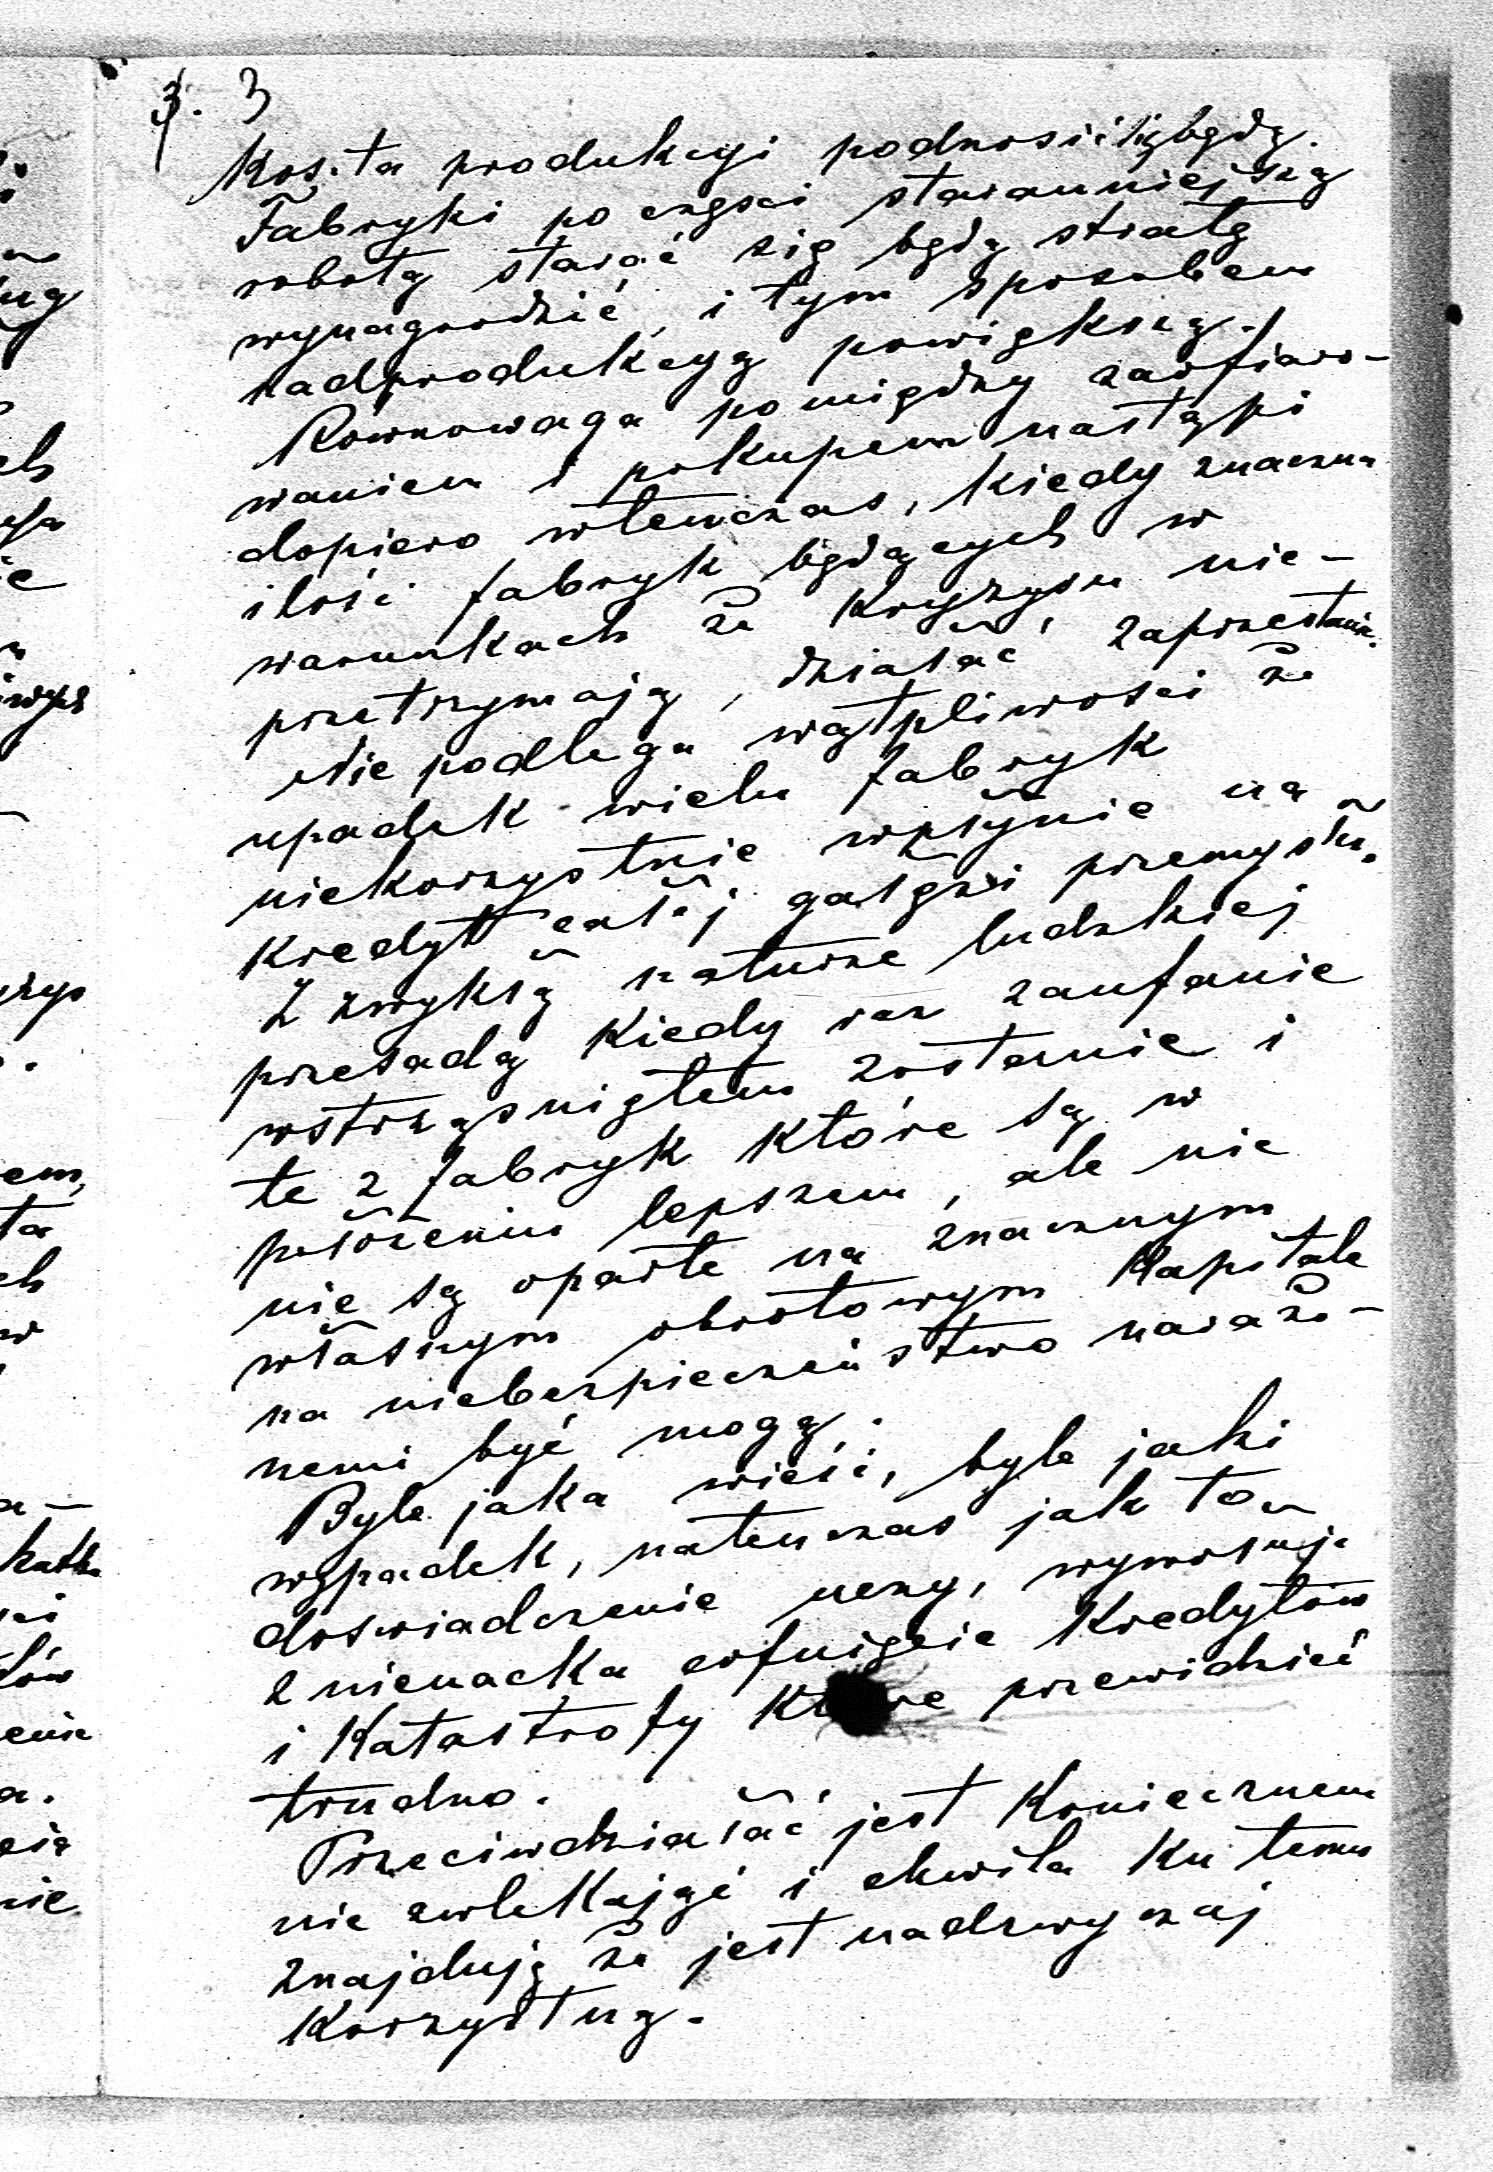 3. 3
Koszta produkcyi podnosić się będą.
Fabryki po części staranniejszą
robotą starać się będą stratę
wynagrodzić, i tym sposobem
nadprodukcyą powiększą.
Równowaga pomiędzy zaofiaro-
waniem i pokupem nastąpi
dopiero wtenczas, kiedy znaczna
ilość fabryk będących w
warunkach że kryzysu nie-
przetrzymają, działać zaprzestanie.
Nie podlega wątpliwości że
upadek wielu fabryk
niekorzystnie wpłynie na
kredyt całej gałęzi przemysłu.
Z zwykłą naturze ludzkiej
przesadą kiedy raz zaufanie
wstrząśniętem zostanie i
te z fabryk które są w
położeniu lepszem, ale nie
nie są oparte na znacznym
własnym obrotowym kapitale
na niebezpieczeństwo narażo-
nemi być mogą.
Byle jaka wieść, byle jaki
wypadek, natenczas jak to
doświadczenie uczy, wywołuje
znienacka cofnięcie kredytów
i katastrofy które przewidzieć
trudno.
Przeciwdziałać jest koniecznem
nie zwlekając i chwila ku temu
znajduję że jest nadzwyczaj
korzystną.